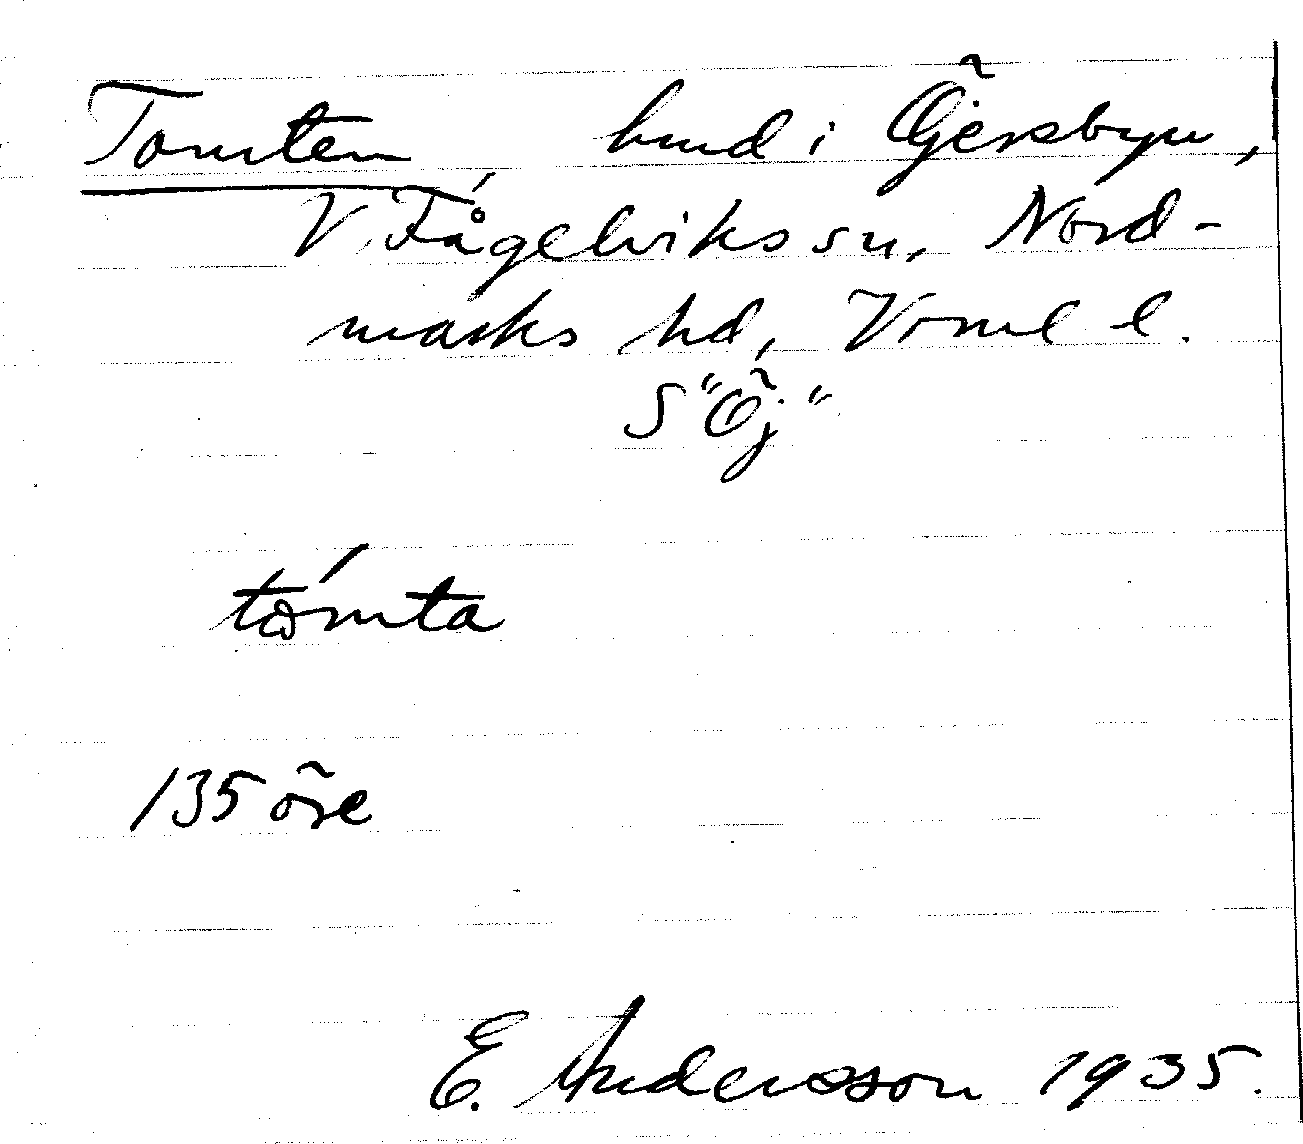 Tomten, hmd i Öjersbyn,
V. Fågelviks sn, Nord-
marks hd, Vrml l.
S "Öj"
tómta
135 öre
E. Andersson 1935.